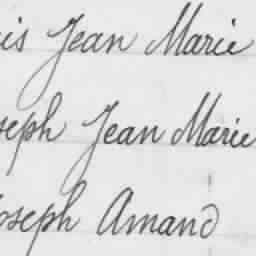 is Jean Marie
seph Jean Marie
oseph Amand